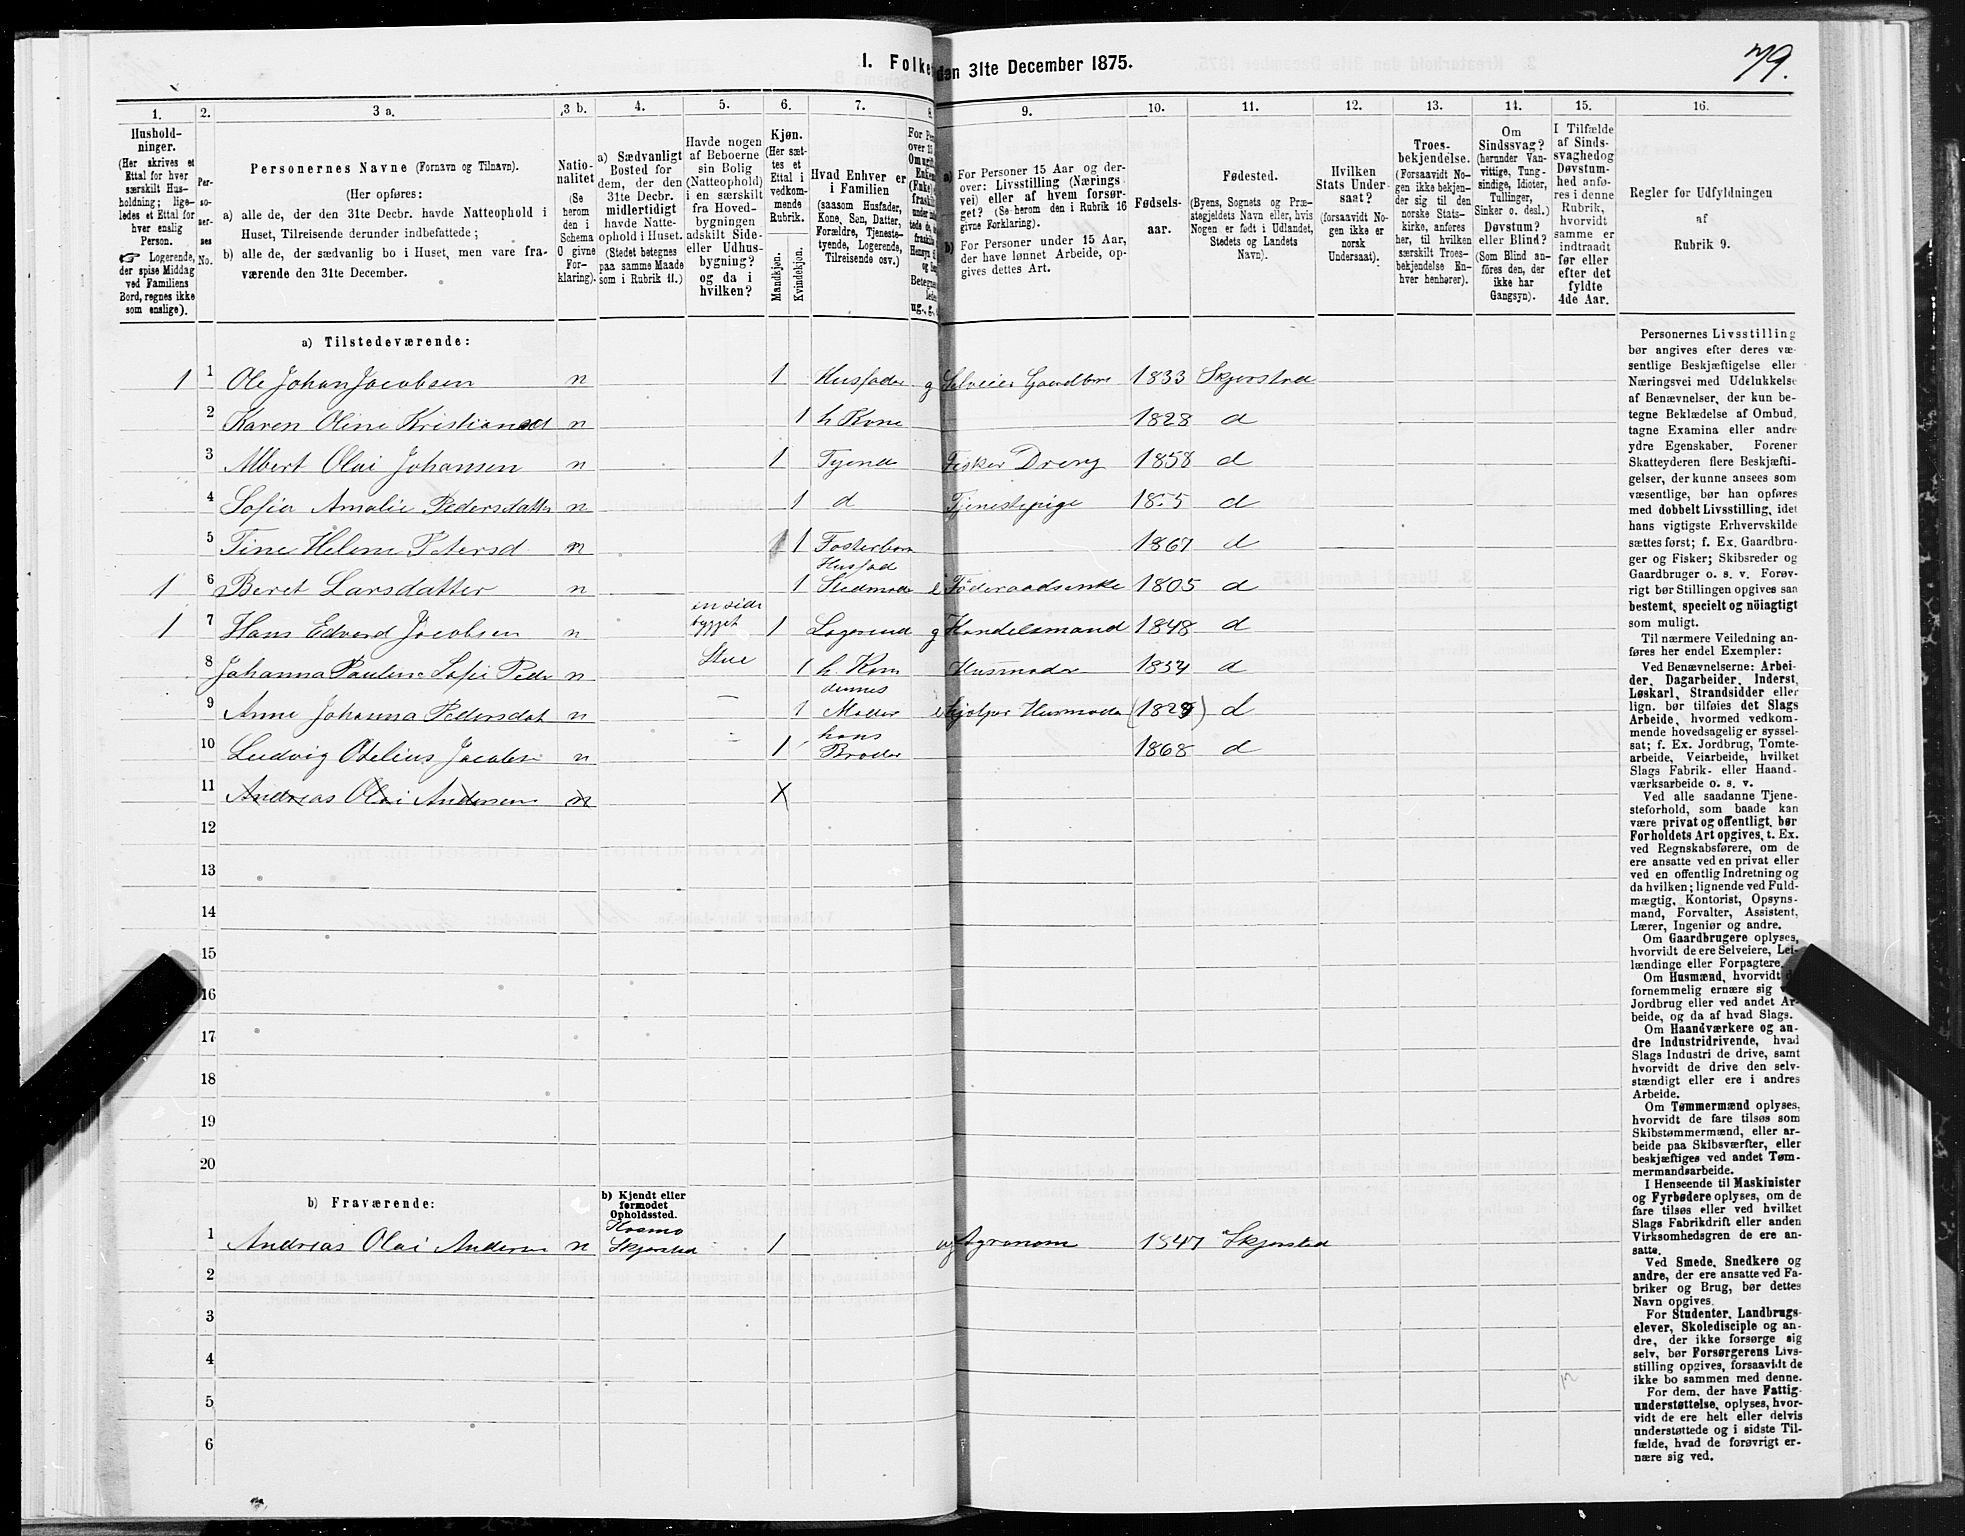 79.
I. Folke den 31te December 1875.
1. 2. 3 a. 3 b. 4. 5. 6. 7. 8. 9. 10. 11. 12. 13. 14. 15. 16.
Hushold-
ninger.
(Her skrives et
Ettal for hver
særskilt Hus-
holdning; lige-
ledes et Ettal for
hver enslig
Person.
☞ Logerende,
der spise Middag
ved Familiens
Bord, regnes ikke
som enslige).
Per-
so-
ner-
nes
No.
Personernes Navne (Fornavn og Tilnavn).
(Her opføres:
a) alle de, der den 31te Decbr. havde Natteophold i
Huset, Tilreisende derunder indbefattede;
b) alle de, der sædvanlig bo i Huset, men vare fra-
værende den 31te December.
Natio-
nalitet
(Se
herom
den i
Schema
O givne
For-
klaring).
a) Sædvanligt
Bosted for
dem, der den
31te Decbr.
midlertidigt
havde Natte-
ophold i Huset.
(Stedet betegnes
paa samme Maade
som i Rubrik 11.)
Havde nogen
af Beboerne
sin Bolig
(Natteophold)
i en særskilt
fra Hoved-
bygningen
adskilt Side-
eller Udhus-
bygning?
og da i
hvilken?
Kjøn.
(Her sæt-
tes et
Ettal i
vedkom-
mende
Rubrik.
Mandkjøn.
Kvindekjøn.
Hvad Enhver er
i Familien
(saasom Husfader,
Kone, Søn, Datter,
Forældre, Tjeneste-
tyende, Logerende,
Tilreisende osv.)
a) For Personer 15 Aar og der-
over: Livsstilling (Nærings-
vei) eller af hvem forsør-
get? (Se herom den i Rubrik 16
givne Forklaring).
b) For Personer under 15 Aar,
der have lønnet Arbeide, op-
gives dettes Art.
Fødsels-
aar.
Fødested.
(Byens, Sognets og Præ-
stegjeldets Navn eller, hvis
Nogen er født i Udlandet,
Stedets og Landets
Navn).
Hvilken
Stats Under-
saat?
(forsaavidt No-
gen ikke er
norsk
Undersaat).
Troes-
bekjendelse.
(Forsaavidt No-
gen ikke bekjen-
der sig til den
norske Stats-
kirke, anføres
her, til hvilken
særskilt Troes-
bekjendelse En-
hver henhører).
Om
Sindssvag?
(herunder Van-
vittige, Tung-
sindige, Idioter,
Tullinger,
Sinker o. desl.)
Døvstum?
eller Blind?
(Som Blind an-
føres den, der
ikke har
Gangsyn).
I Tilfælde
af Sinds-
svaghedog
Døvstum-
hed anfø-
res i denne
Rubrik,
hvorvidt
samme er
indtraadt
før eller
efter det
fyldte
4de Aar.
Regler for Udfyldningen
af
Rubrik 9.
a) Tilstedeværende:
1 1 Ole Johan Jacobsen n 1 Husfader g Selveier Gaardbru 1833 Skjerstad
2 Karen Oline Kristiansdt n 1 h Kone 1828 d
3 Albert Olai Johansen n 1 Tyende Fisker Dreng 1858 d
4 Sofia Amalie Pedersdatter n 1 d Tjenestepige 1855 d
5 Tine Helene Petersd n 1 Fosterbarn 1867 d
Husfad
1 6 Beret Larsdatter n 1 Stedmoder e Föderaadsenke 1805 d
en side
1 7 Hans Edvard Jacobsen n bygget 1 Logerend g Handelsmand 1848 d
8 Johanna Pauline Sofie Peder n Stue 1 h. Kone Husmoder 1854 d
dennes
9 Anne Johanna Pedersdat n — 1 Moder e hjelper Husmoder (1828) d
hans
10 Ludvig Otelius Jacobse n 1 Broder 1868 d
11 Andreas Olai Andersen n
12
13
14
15
16
17
18
19
20
b) Fraværende:
b) Kjendt eller
formodet
Opholdssted.
Kosmo
1 Andreas Olai Andersen n Skjerstad 1 ug Agronom 1847 Skjerstad
2
3
4
5
6
Personernes Livsstilling
bør angives efter deres væ-
sentlige Beskjæftigelse eller
Næringsvei med Udelukkelse
af Benævnelser, der kun be-
tegne Beklædelse af Ombud,
tagne Examina eller andre
ydre Egenskaber. Forener
Skatteyderen flere Beskjæfti-
gelser, der kunne ansees som
væsentlige, bør han opføres
med dobbelt Livsstilling, idet
hans vigtigste Erhvervskilde
sættes først; f. Ex. Gaardbru-
ger og Fisker; Skibsreder og
Gaardbruger o. s. v. Forøv-
rigt bør Stillingen opgives saa
bestemt, specielt og nöiagtigt
som muligt.
Til nærmere Veiledning an-
føres her endel Exempler:
Ved Benævnelserne: Arbei-
der, Dagarbeider, Inderst,
Løskarl, Strandsidder eller
lign. bør tilføies det Slags
Arbeide, hvormed vedkom-
mende hovedsagelig er syssel-
sat; f. Ex. Jordbrug, Tomte-
arbeide, Veiarbeide, hvilket
Slags Fabrik- eller Haand-
værksarbeide o. s. v.
Ved alle saadanne Tjene-
steforhold, som baade kan
være privat og offentligt, bør
Forholdets Art opgives, t. Ex.
ved Regnskabsførere, om de
ere ansatte ved en privat eller
ved en offentlig Indretning og
da hvilken; lignende ved Fuld-
mægtig, Kontorist, Opsyns-
mand, Forvalter, Assistent,
Lærer, Ingeniør og andre.
Om Gaardbrugere oplyses,
hvorvidt de ere Selveiere, Lei-
lændinge eller Forpagtere.
Om Husmænd, hvorvidt de
fornemmelig ernære sig
Jordbrug eller ved andet Ar-
beide, og da af hvad Slags.
Om Haandværkere og an-
dre Industridrivende, hvad
Slags Industri de drive, samt
hvorvidt de drive den selv-
stændigt eller ere i andres
Arbeide.
Om Tømmermænd oplyses,
hvorvidt de fare tilsøs som
Skibstømmermænd, eller ar-
beide paa Skibsværfter, eller
beskjæftiges ved andet Tøm-
mermandsarbeide.
I Henseende til Maskinister
og Fyrbødere oplyses, om de
fare tilsøs eller ved hvilket
Slags Fabrikdrift eller anden
Virksomhedsgren de ere an-
satte.
Ved Smede, Snedkere og
andre, der ere ansatte ved Fa-
briker og Brug, bør dettes
Navn opgives.
For Studenter, Landbrugs-
elever, Skoledisciple og an-
dre, der ikke forsørge sig
selv, bør Forsørgerens Livs-
stilling opgives, forsaavidt de
ikke bo sammen med denne.
For dem, der have Fattig-
understøttelse, oplyses, hvor-
vidt de ere helt eller delvis
understøttede og i sidste Til-
fælde, hvad de forøvrigt er-
nære sig ved.